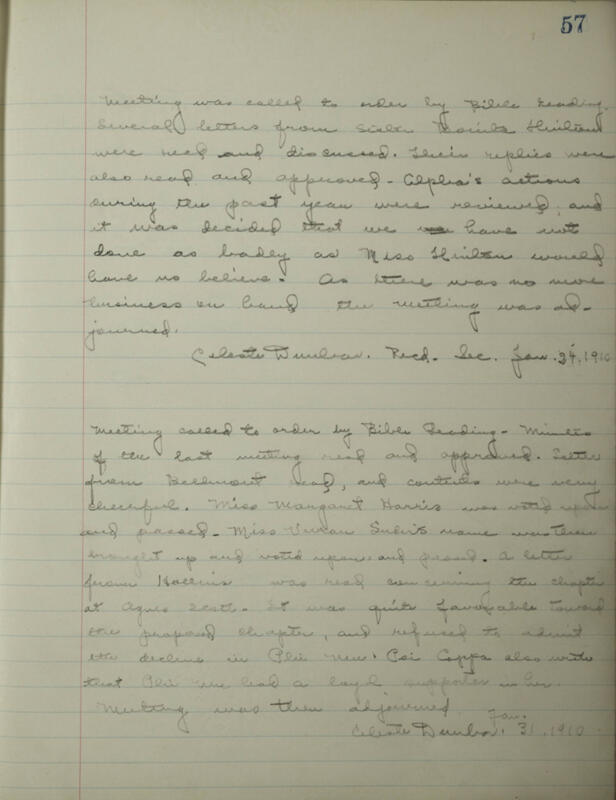 57
Meeting was called to order by Bible Reading.
Several letters from Sister Hinton
were read and discussed. Their replies were
also read and approved - Alpha's actions
during the past year were reviewed, and
it was decided that we have not
done as badly as Miss Hinton would
have us believe. As there was no more
business on hand the meeting was ad-
journed.
Celeste Dunbar. Recd. Sec. Jan. 24, 1910
Meeting called to order by Bible Reading - Minutes
of the last meeting read and approved. Letter
from Bellmont read, and contents were very
cheerful. Miss Margaret Harris was voted upon
and passed - Miss name was then
brought up and voted upon and passed. A letter
from Hollins was read concerning the chapter
at Agnes Scott. It was quite favorable toward
the proposed chapter, and refused to admit
the decline in Phi Mu. Psi Cappa also wrote
that Phi Mu had a loyal supporter in her.
Meeting was then adjourned
Celeste Dunbar. Jan. 31, 1910